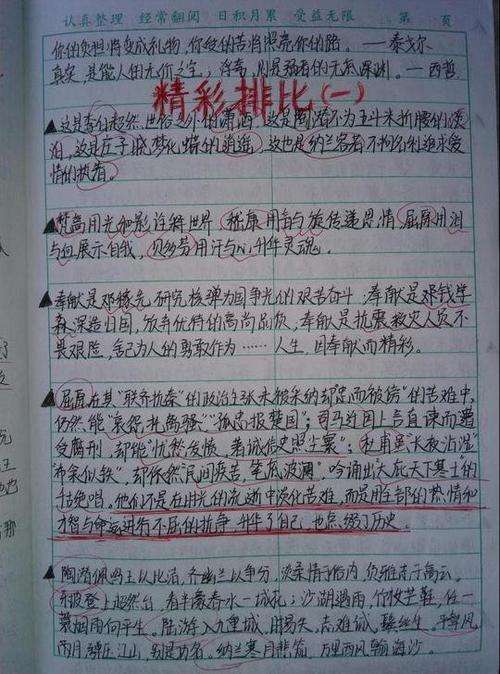 认真整理 经常翻阅 日积月累 受益无限 第 页
你的负担将变成礼物，你受的苦将照亮你的路。——泰戈尔
真笑，是能人的无价之宝；浮夸，则是弱者的无底深渊。——西哲
精彩排比(一)
▲这是李白超然世俗之外的潇洒，这是陶潜不为五斗米折腰的淡
泊，这是庄子晓梦化蝶的逍遥，这也是纳兰容若不拘名利追求爱
情的执着。
▲梵高用光和影诠释世界 嵇康用音与旋传递思情，屈原用泪
与血展示自我，贝多芬用汗与心升华灵魂。
▲奉献是邓稼先研究核弹为国争光的艰苦奋斗，奉献是邓钱学
森深造归国，放弃优待的高尚品质，奉献是抗震救灾人员不
畏艰险，舍己为人的勇敢作为……人生，因奉献而精彩。
▲屈原在其“联齐抗秦”的政治主张未被采纳却忠而被谤”的苦难中，
仍然能“哀绍札 偏强”“孤忠报楚国”；司马迁因上言直谏而遭
受腐刑，却能“忧愁发愤，著诚信史照尘寰”；杜甫虽“长夜沾湿”
“布衾似铁”，却依然“民间疾苦，笔底波澜”，吟诵出大庇天下寒士的
千古绝唱。他们不是在时光的流逝中淡化苦难，而是用全部的热情和
才智与命运进行不屈的抗争，升华了自己，也点缀了历史。
▲陶潜佩鸣玉以比洁，齐幽兰以争芬，淡柔情于俗内，负雅志于高云。
东坡登上超然台，看半壕春水一城花；沙湖遇雨，竹杖芒鞋，任一
蓑烟雨向平生。陆游 入九重城，
雨月 江山，别是功名。纳兰寒月悲笳，万里西风瀚海沙。